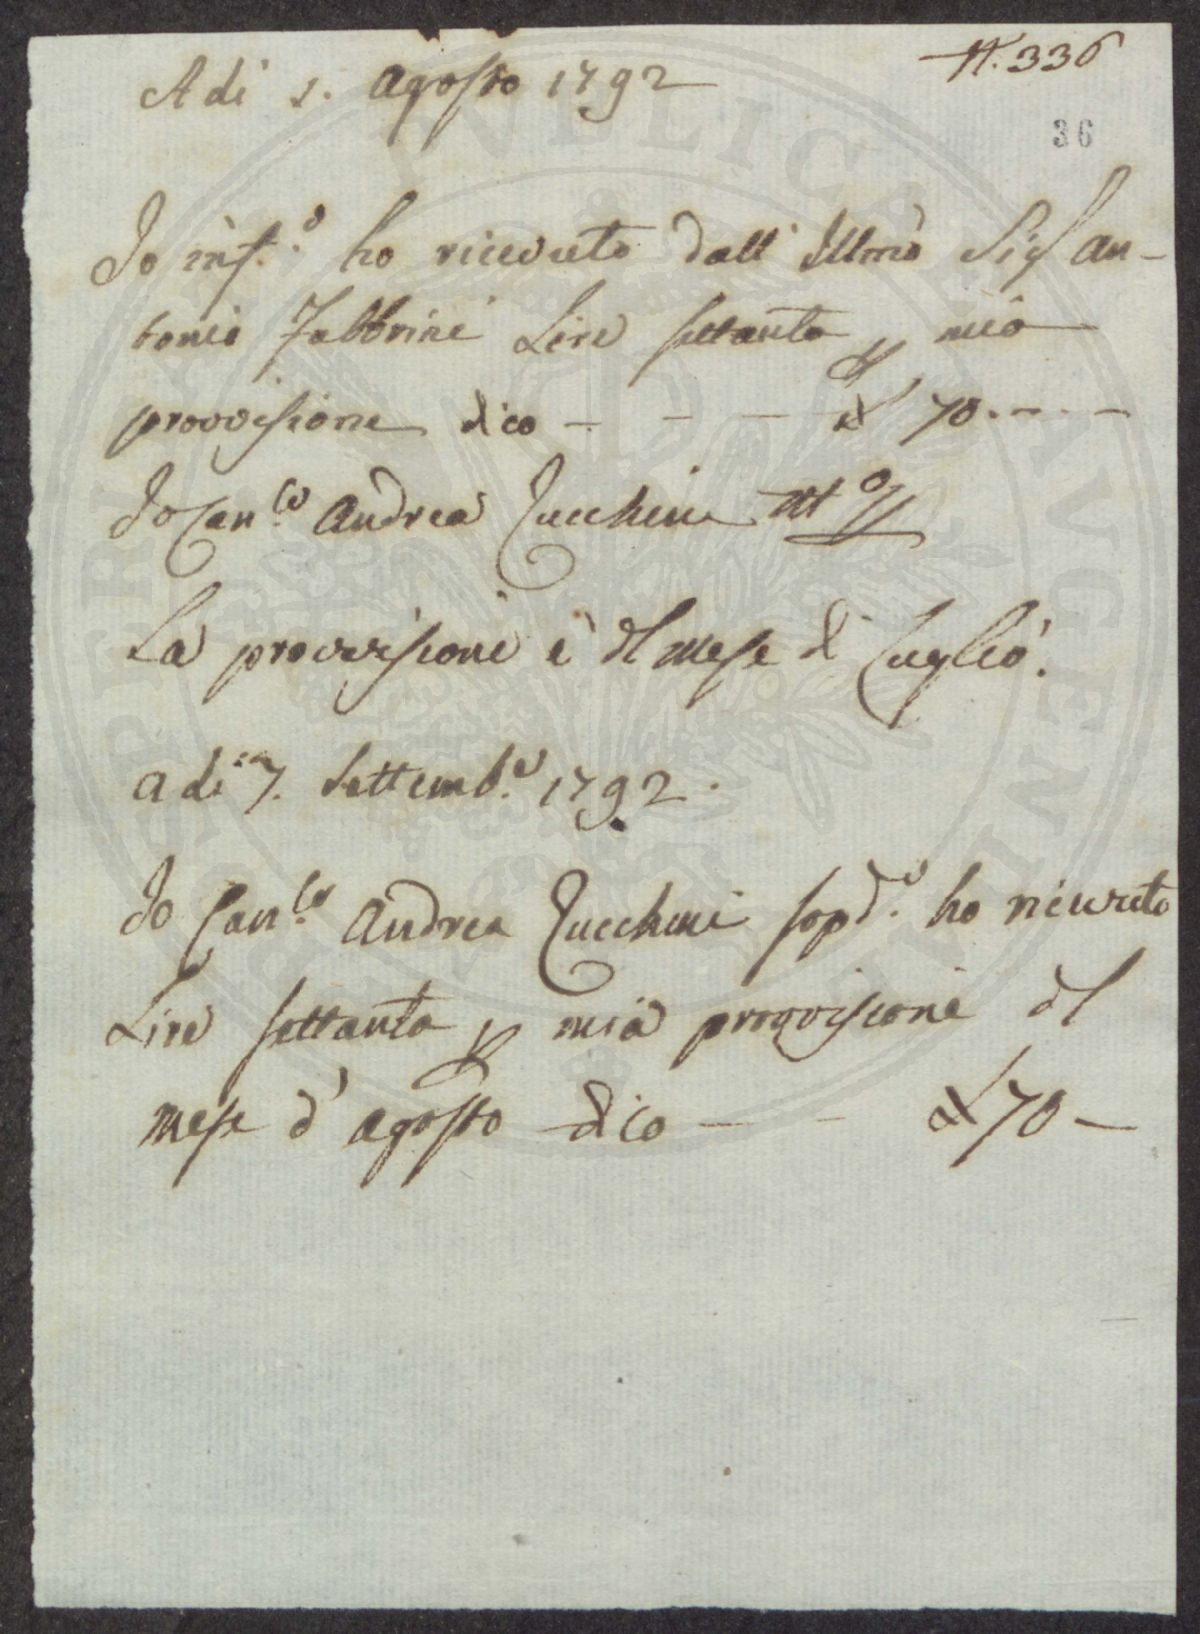 N. 336
A di 1. Agosto 1792
36
Io inf.o ho ricevuto dall' Illmo Sig An-
tonio Fabbrini Lire settanta p mia
provvisione dico - - - £ 70. - - -
Io Can.co Andrea Zucchini
La provvisione è del mese di Luglio.
a di 7. Settemb.e 1792.
Io Can.co Andrea Zucchini sopd.o ho ricevuto
Lire settanta p mia provvisione del
mese d' agosto dico - - £ 70 -